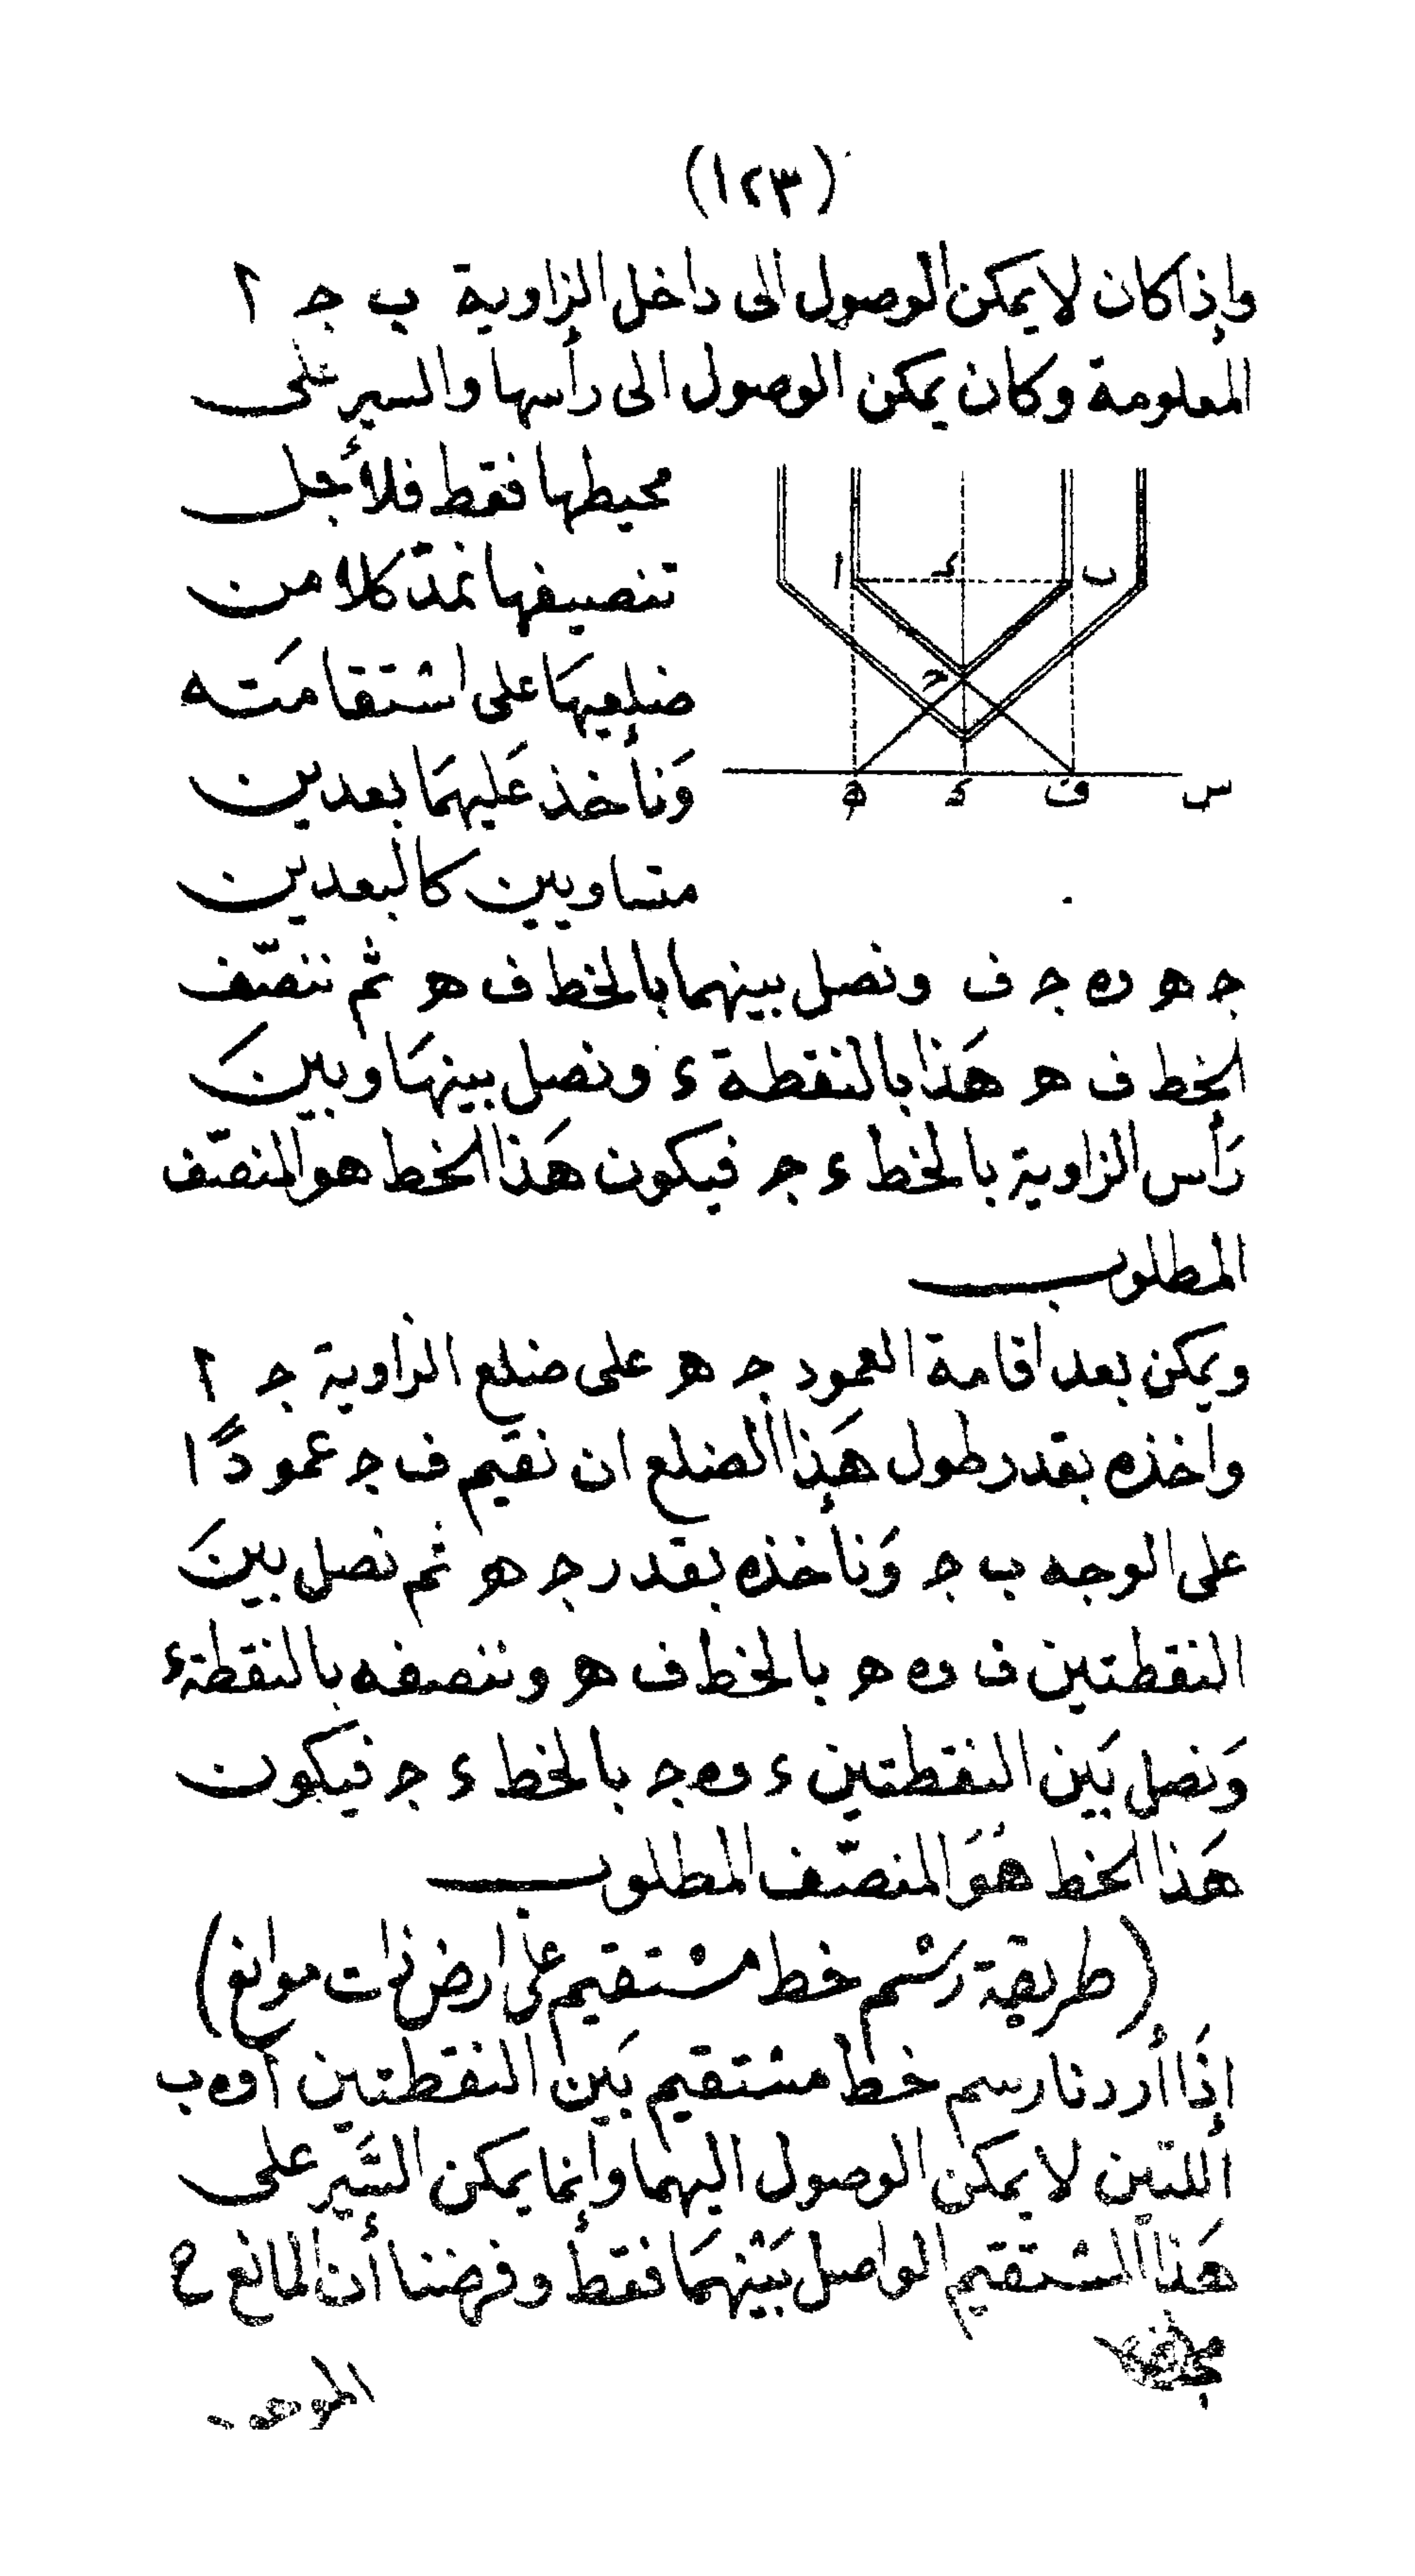 (١٢٣)
وإذا كان لا يمكن الوصول الى داخل الزاوية ب ج ٢
المعلومة وكان يمكن الوصول الى رأسها والسير على
محيطها فقط فلأجل
تنصيفها نمدّ كلا من
ضلعيهَا على استقامَته
وَنأخذ عَليهمَا بعدين
متساويين كالبعدين
ا د ب
ج
ه د ف س
ج ه و٥ ج ف ونصل بينهما بالخط ف ه ثم ننصّف
الخط ف ه هَذا بالنقطة ء ونصل بينهَا وبينَ
رَأس الزاوية بالخط ء ج فيكون هَذا الخط هو المنصّف
المطلوب
ويمكن بعد اقامة العمود ج ه على ضلع الزاوية ج ٢
وأخذه بقدر طول هَذا الضلع ان نقيم ف ج عمودًا
على الوجه ب ج وَنأخذه بقدر ج ه ثم نصل بينَ
النقطتين ف و٥ ه بالخط ف ه وننصفه بالنقطة ء
وَنصل بَين النقطتين ء و٥ ج بالخط ء ج فيكون
هَذا الخط هُوَ المنصّف المطلوب
(طريقة رسْم خط مسْتقيم على ارض ذات موانع)
إذَا أردنا رسم خط مسْتقيم بَين النقطتين أ و٥ ب
اللتين لا يمكن الوصول اليهما وإنما يمكن السَّير على
هَذا المسْتقيم الواصل بَيْنهمَا فقط وفرضنا أن المانع ح